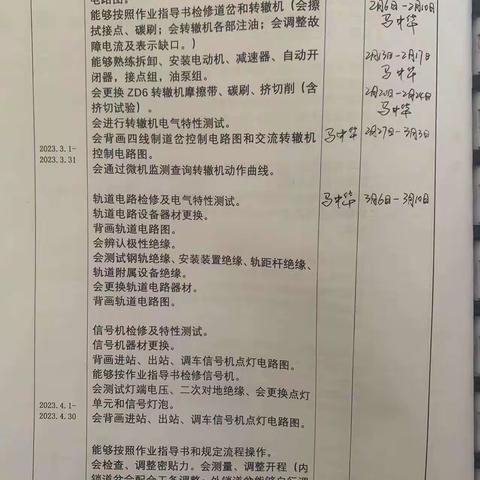 电路图。
能够按照作业指导书检修道岔和转辙机（会擦
拭接点、碳刷；会转辙机各部注油；会调整故
障电流及表示缺口。）
2月6日-2月10日
马中华
能够熟练拆卸、安装电动机、减速器、自动开
闭器，接点组，油泵组。
2月13日-2月17日
马中华
会更换 ZD6 转辙机摩擦带、碳刷、挤切削（含
挤切试验）。
2月20日-2月24日
马中华
会进行转辙机电气特性测试。
会背画四线制道岔控制电路图和交流转辙机
控制电路图。
马中华 2月27日-3月3日
2023.3.1-
2023.3.31
会通过微机监测查询转辙机动作曲线。
轨道电路检修及电气特性测试。
马中华 3月6日-3月10日
轨道电路设备器材更换。
背画轨道电路图。
会辨认极性绝缘。
会测试钢轨绝缘、安装装置绝缘、轨距杆绝缘、
轨道附属设备绝缘。
会更换轨道电路器材。
背画轨道电路图。
信号机检修及特性测试。
信号机器材更换。
背画进站、出站、调车信号机点灯电路图。
能够按作业指导书检修信号机。
会测试灯端电压、二次对地绝缘、会更换点灯
单元和信号灯泡。
2023.4.1-
2023.4.30
会背画进站、出站、调车信号机点灯电路图。
能够按照作业指导书和规定流程操作。
会检查、调整密贴力。会测量、调整开程（内
锁道岔会配合工务调整；外锁道岔能够自行调